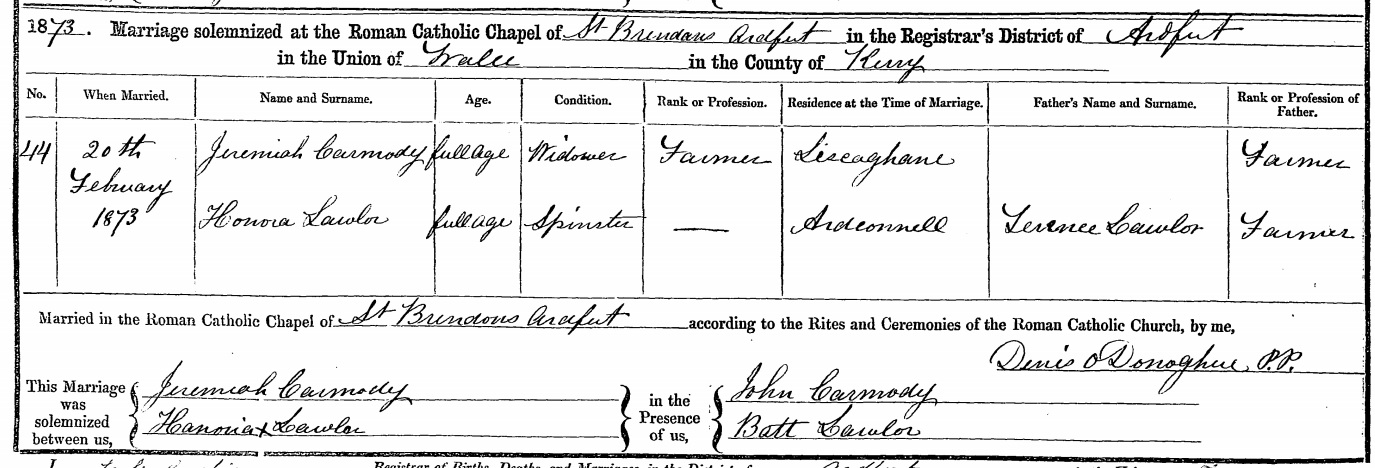 1873. Marriage solemnized at the Roman Catholic Chapel of St Brendans Ardfert in the Registrar's District of Ardfert
in the Union of Tralee in the County of Kerry
No. When Married. Name and Surname. Age. Condition. Rank or Profession. Residence at the Time of Marriage. Father's Name and Surname. Rank or Profession of Father.
44 20th February 1873 Jeremiah Carmody full age Widower Farmer Liscaghane Farmer
Honora Lawlor full age Spinster — Ardconnell Terence Lawlor Farmer
Married in the Roman Catholic Chapel of St Brendons Ardfert according to the Rites and Ceremonies of the Roman Catholic Church, by me,
Denis O Donoghue, P.P.
This Marriage was solemnized between us, Jeremiah Carmody
Hanoria x Lawlor
in the Presence of us, John Carmody
Batt Lawlor
Registrar of Births, Deaths, and Marriages, in the District